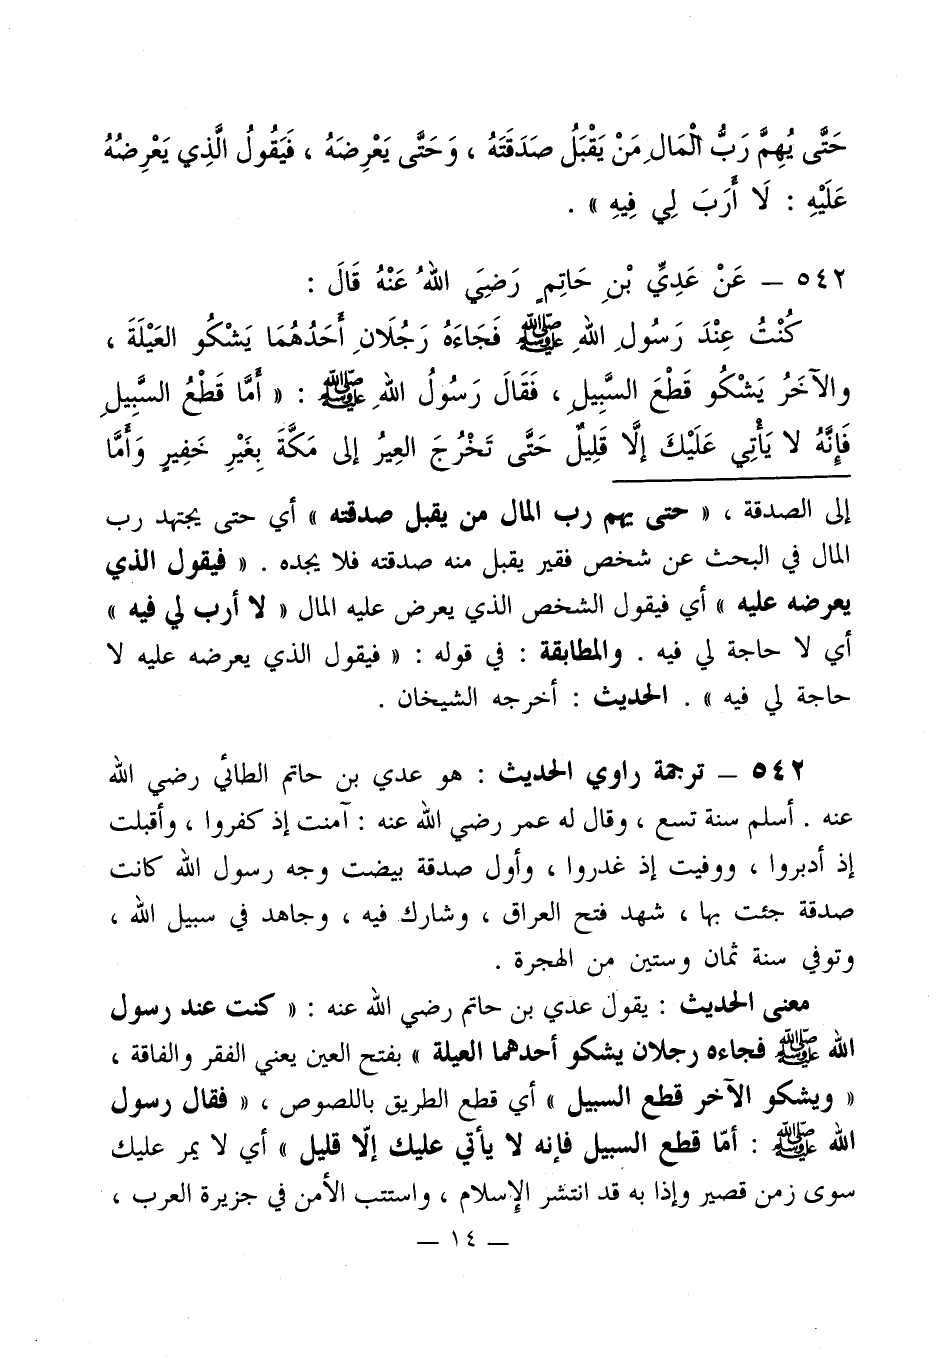 حَتَّى يُهِمَّ رَبُّ الْمَالِ مَنْ يَقْبَلُ صَدَقَتَهُ ، وَحَتَّى يَعْرِضَهُ ، فَيَقُولُ الَّذِي يَعْرِضُهُ
عَلَيْهِ : لَا أَرَبَ لِي فِيهِ » .
٥٤٢ – عَنْ عَدِيِّ بْنِ حَاتِمٍ رَضِيَ اللهُ عَنْهُ قَالَ :
كُنْتُ عِنْدَ رَسُولِ اللهِ ﷺ فَجَاءَهُ رَجُلَانِ أَحَدُهُمَا يَشْكُو العَيْلَةَ ،
والآخَرُ يَشْكُو قَطْعَ السَّبِيلِ ، فَقَالَ رَسُولُ اللهِ ﷺ : « أَمَّا قَطْعُ السَّبِيلِ
فَإِنَّهُ لا يَأْتِي عَلَيْكَ إِلَّا قَلِيلٌ حَتَّى تَخْرُجَ العِيرُ إلى مَكَّةَ بِغَيْرِ خَفِيرٍ وَأَمَّا
إلى الصدقة ، « حتى يهم رب المال من يقبل صدقته » أي حتى يجتهد رب
المال في البحث عن شخص فقير يقبل منه صدقته فلا يجده . « فيقول الذي
يعرضه عليه » أي فيقول الشخص الذي يعرض عليه المال « لا أرب لي فيه »
أي لا حاجة لي فيه . والمطابقة : في قوله : « فيقول الذي يعرضه عليه لا
حاجة لي فيه » . الحديث : أخرجه الشيخان .
٥٤٢ – ترجمة راوي الحديث : هو عدي بن حاتم الطائي رضي الله
عنه . أسلم سنة تسع ، وقال له عمر رضي الله عنه : آمنت إذ كفروا ، وأقبلت
إذ أدبروا ، ووفيت إذ غدروا ، وأول صدقة بيضت وجه رسول الله كانت
صدقة جئت بها ، شهد فتح العراق ، وشارك فيه ، وجاهد في سبيل الله ،
وتوفي سنة ثمان وستين من الهجرة .
معنى الحديث : يقول عدي بن حاتم رضي الله عنه : « كنت عند رسول
الله ﷺ فجاءه رجلان يشكو أحدهما العيلة » بفتح العين يعني الفقر والفاقة ،
« ويشكو الآخر قطع السبيل » أي قطع الطريق باللصوص ، « فقال رسول
الله ﷺ : أمّا قطع السبيل فإنه لا يأتي عليك إلّا قليل » أي لا يمر عليك
سوى زمن قصير وإذا به قد انتشر الإسلام ، واستتب الأمن في جزيرة العرب ،
– ١٤ –